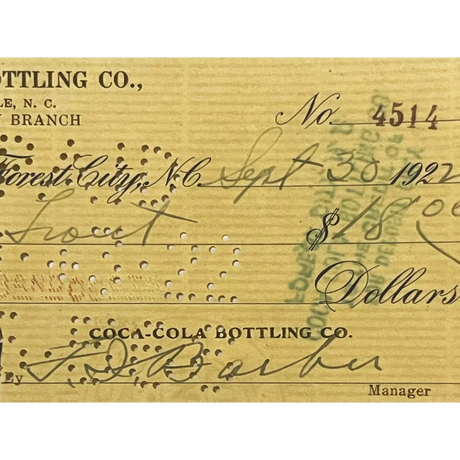 OTTLING CO.,
LE, N. C.
BRANCH
No. 4514
Forest City, N.C. Sept 30 1922
Trout $18.00
Dollars
COCA-COLA BOTTLING CO.
By Barber
Manager